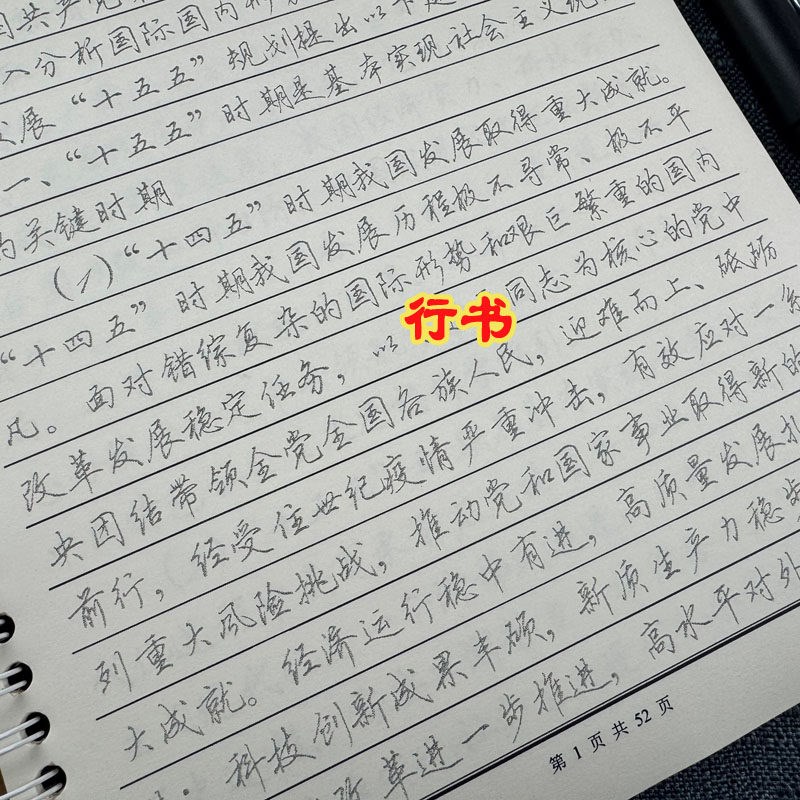 国共产党
入分析国际国内形
发展“十五五”规划提出以下建
一、“十五五”时期是基本实现社会主义现
的关键时期
(1)“十四五”时期我国发展取得重大成就。
“十四五”时期我国发展历程极不寻常、极不平
凡。面对错综复杂的国际形势和艰巨繁重的国内
改革发展稳定任务,以 同志为核心的党中
央团结带领全党全国各族人民,迎难而上、砥砺
前行,经受住世纪疫情严重冲击,有效应对一系
列重大风险挑战,推动党和国家事业取得新的
大成就。经济运行稳中有进,高质量发展扎
科技创新成果丰硕,新质生产力稳步
改革进一步推进,高水平对外
第 1 页 共 52 页
行书